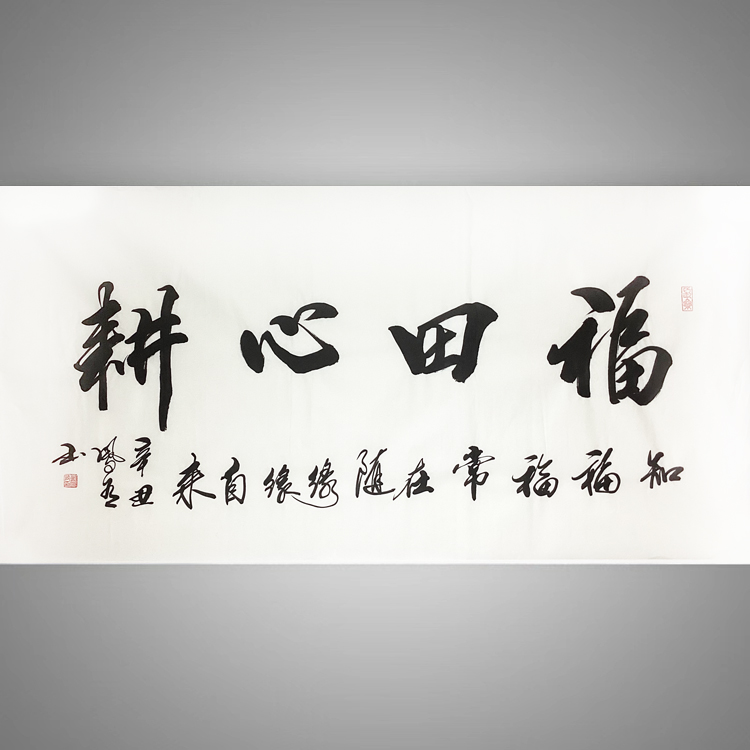 福田心耕
知福福常在随缘缘自来
辛丑